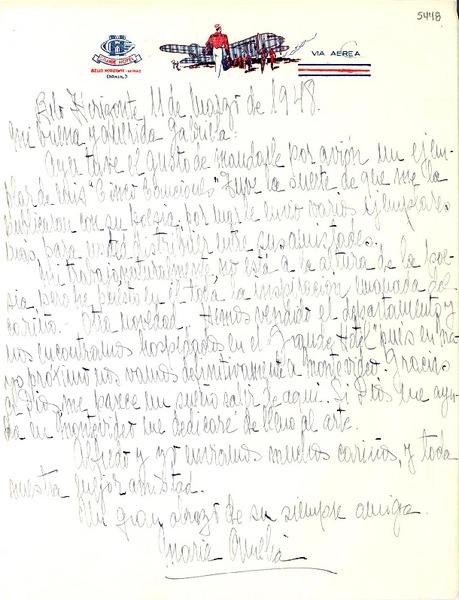 5448
GRANDE HOTEL
BELO HORIZONTE - MINAS
(BRASIL)
VIA AEREA
Belo Horizonte, 11 de marzo de 1948.
Mi buena y querida Gabriela:
Ayer tuve el gusto de mandarle por avión un ejem-
plar de mis "Cinco Canciones". Tuve la suerte de que me la
publicaran con su poesía, por mar le envío varios ejemplares
más, para Ud. distribuir entre sus amistades.
Mi trabajo, naturalmente, no está a la altura de la poe-
sía pero he puesto en él toda la inspiración emanada de
cariño. - Otra novedad. Hemos vendido el departamento y
nos encontramos hospedados en el "Grande Hotel" pués en ma-
yo próximo nos vamos definitivamente a Montevideo. Gracias
a Dios, me parece un sueño salir de aquí. Si Dios me ayu-
da en Montevideo me dedicaré de lleno al arte.
Alfredo y yo enviamos muchos cariños, y toda
nuestra mejor amistad.
Un gran abrazo de su siempre amiga.
Marie Amelia